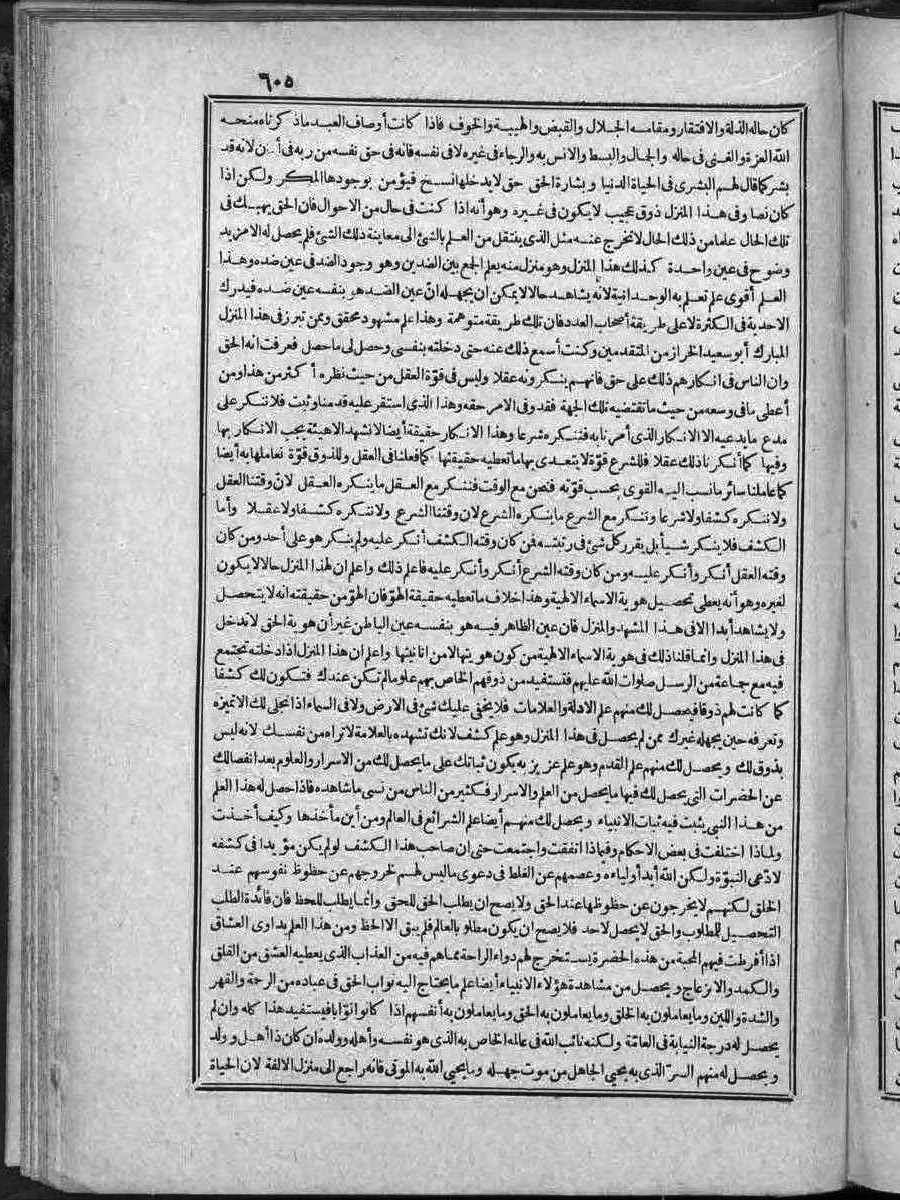 ٦٠٥
كان حاله الذلة والافتقار ومقامه الجلال والقبض والهيبة والخوف فاذا كانت أوصاف العبد ماذكرناه منحه
الله العزة والغنى فى حاله والجمال والبسط والانس به والرجاء فى غيره لا فى نفسه فانه فى حق نفسه من ربه فى أمن لانه قد
بشر كما قال لهم البشرى فى الحياة الدنيا وبشارة الحق حق لا يدخلها نسخ فيؤمن بوجودها المكر ولكن اذا
كان نصا وفى هذا المنزل ذوق عجيب لا يكون فى غيره وهو أنه اذا كنت فى حال من الاحوال فان الحق يهبك فى
تلك الحال علما من ذلك الحال لا تخرج عنه مثل الذى ينتقل من العلم بالشئ الى معاينة ذلك الشئ فلم يحصل له الا مزيد
وضوح فى عين واحدة كذلك هذا المنزل وهو منزل منه يعلم الجمع بين الضدين وهو وجود الضد فى عين ضده وهذا
العلم أقوى علم تعلم به الوحدانية لانه يشاهد حالا لا يمكن أن يجهله ان عين الضد هو بنفسه عين ضده فيدرك
الاحدية فى الكثرة لا على طريقة أصحاب العدد فان تلك طريقة متوهمة وهذا علم مشهود محقق وممن تبرز فى هذا المنزل
المبارك أبو سعيد الخراز من المتقدمين وكنت أسمع ذلك عنه حتى دخلته بنفسى وحصل لى ما حصل فعرفت انه الحق
وان الناس فى انكارهم ذلك على حق فانهم ينكرونه عقلا وليس فى قوة العقل من حيث نظره أكثر من هذا ومن
أعطى ما فى وسعه من حيث ما تقتضيه تلك الجهة فقد وفى الامر حقه وهذا الذى استقر عليه قدمنا وثبت فلا ننكر على
مدع ما يدعيه الا الانكار الذى أمرنا به فننكره شرعا وهذا الانكار حقيقة أيضا لا نشهد الا هيئة يجب الانكار بها
وفيها كما أنكرنا ذلك عقلا فللشرع قوة لا يتعدى بها ما تعطيه حقيقتها كما فعلنا فى العقل وللذوق قوة نعاملها به أيضا
كما عاملنا سائر ما نسب اليه القوى بحسب قوته فنحن مع الوقت فننكر مع العقل ما ينكره العقل لان وقتنا العقل
ولا ننكره كشفا ولا شرعا وننكر مع الشرع ما ينكره الشرع لان وقتنا الشرع ولا ننكره كشفا ولا عقلا وأما
الكشف فلا ينكر شيأ بل يقرر كل شئ فى رتبته فمن كان وقته الكشف أنكر عليه ولم ينكر هو على أحد ومن كان
وقته العقل أنكر وأنكر عليه ومن كان وقته الشرع أنكر وأنكر عليه فاعلم ذلك واعلم ان لهذا المنزل حالا لا يكون
لغيره وهو أنه يعطى تحصيل هوية الاسماء الالهية وهذا خلاف ما تعطيه حقيقة الهو فان الهو من حقيقته انه لا يتحصل
ولا يشاهد أبدا الا فى هذا المشهد والمنزل فان عين الظاهر فيه هو بنفسه عين الباطن غير أن هوية الحق لا تدخل
فى هذا المنزل وانما قلنا ذلك فى هوية الاسماء الالهية من كون هويتها لا من انانيتها واعلم ان هذا المنزل اذا دخلته تجتمع
فيه مع جماعة من الرسل صلوات الله عليهم فتستفيد من ذوقهم الخاص بهم علوما لم تكن عندك فتكون لك كشفا
كما كانت لهم ذوقا فيحصل لك منهم علم الادلة والعلامات فلا يخفى عليك شئ فى الارض ولا فى السماء اذا تجلى لك الا تميزه
وتعرفه حين يجهله غيرك ممن لم يحصل فى هذا المنزل وهو علم كشف لانك تشهده بالعلامة لا تراه من نفسك لانه ليس
بذوق لك ويحصل لك منهم علم القدم وهو علم عزيز به يكون ثباتك على ما يحصل لك من الاسرار والعلوم بعد انفصالك
عن الحضرات التى يحصل لك فيها ما يحصل من العلم والاسرار فكثير من الناس من نسى ما شاهده فاذا حصل له هذا العلم
من هذا النبى يثبت فيه ثبات الانبياء ويحصل لك منهم أيضا علم الشرائع فى العالم ومن أين مأخذها وكيف أخذت
ولماذا اختلفت فى بعض الاحكام وفيماذا اتفقت واجتمعت حتى ان صاحب هذا الكشف لو لم يكن مؤيدا فى كشفه
لادعى النبوة ولكن الله أيد أولياءه وعصمهم عن الغلط فى دعوى ما ليس لهم لخروجهم عن حظوظ نفوسهم عند
الخلق لكنهم لا يخرجون عن حظوظها عند الحق ولا يصح ان يطلب الحق للحق وانما يطلب للحظ فان فائدة الطلب
التحصيل للمطلوب والحق لا يحصل لاحد فلا يصح ان يكون مطلوبا لعالم فلم يبق الا الحظ ومن هذا العلم يداوى العشاق
اذا أفرطت فيهم المحبة من هذه الحضرة يستخرج لهم دواء الراحة مما هم فيه من العذاب الذى يعطيه العشق من القلق
والكمد والازعاج ويحصل من مشاهدة هؤلاء الانبياء أيضا علم ما يحتاج اليه نواب الحق فى عباده من الرحة والقهر
والشدة واللين وما يعاملون به الخلق وما يعاملون به الحق وما يعاملون به أنفسهم اذا كانوا نوابا فيستفيد هذا كله وان لم
يحصل له درجة النيابة فى العامة ولكنه نائب الله فى عالمه الخاص به الذى هو نفسه وأهله وولده ان كان ذا أهل وولد
ويحصل له منهم السر الذى به يحيى الجاهل من موت جهله وما يحيى الله به الموتى فانه راجع الى منزل الالفة لان الحياة